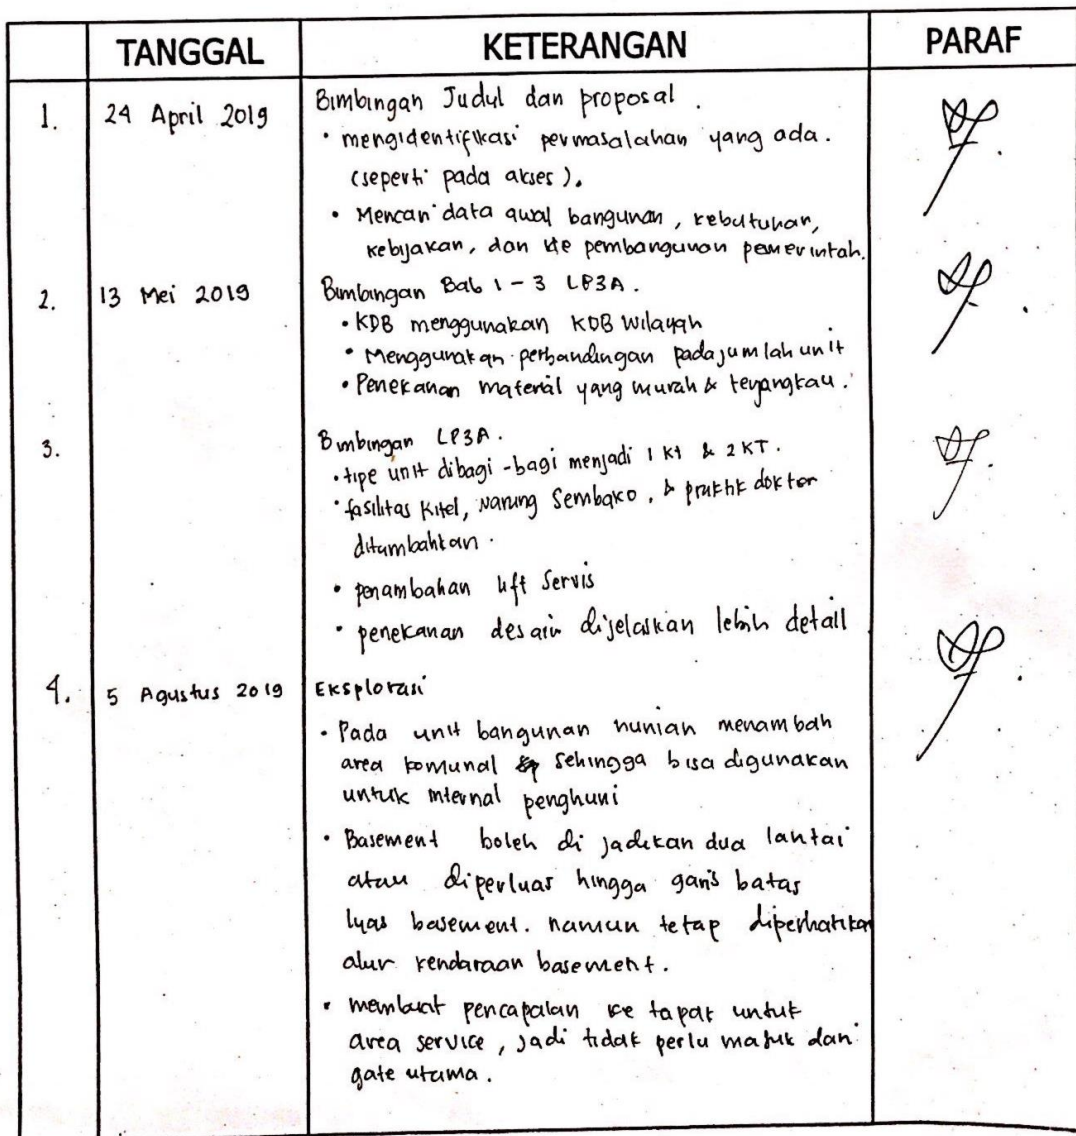 TANGGAL KETERANGAN PARAF
1. 24 April 2019 Bimbingan Judul dan proposal.
• mengidentifikasi permasalahan yang ada.
(seperti pada akses).
• Mencari data awal bangunan, kebutuhan,
kebijakan, dan pembangunan pemerintah.
2. 13 Mei 2019 Bimbingan Bab 1 - 3 LP3A.
• KDB menggunakan KDB Wilayah
• Menggunakan perbandingan pada jumlah unit
• Penekanan material yang murah & terjangkau.
3. Bimbingan LP3A.
• tipe unit dibagi-bagi menjadi 1 KT & 2 KT.
• fasilitas, Warung Sembako, & praktik dokter
ditambahkan.
• penambahan lift Servis
• penekanan desain dijelaskan lebih detail
4. 5 Agustus 2019 Eksplorasi
• Pada unit bangunan hunian menambah
area komunal sehingga bisa digunakan
untuk internal penghuni
• Basement boleh di jadikan dua lantai
atau diperluas hingga garis batas
luas basement. namun tetap diperhatikan
alur kendaraan basement.
• membuat pencapaian ke tapak untuk
area service, jadi tidak perlu masuk dari
gate utama.